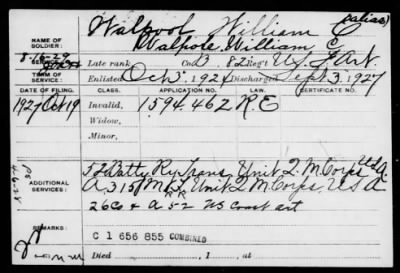 NAME OF SOLDIER: Walpool, William C (alias)
Walpole, William C
SERVICE: Late rank D. 82 Reg't US F Art.
TERM OF SERVICE: Enlisted Oct 3. 1924 Discharged Sept 3. 1927
DATE OF FILING. CLASS. APPLICATION NO. LAW. CERTIFICATE NO.
1927 Oct 19 Invalid, 1594.462 R E
Widow,
Minor,
ADDITIONAL SERVICES: 52 Batty Ry Trans Unit Q. M. Corps US A
A, 315 M Unit Q. M. Corps U S A
26 Co & A 52 US Coast art
REMARKS: C 1 656 855 COMBINED
Died , 1 , at